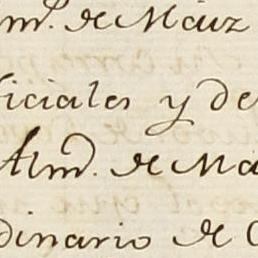 m.º de Maiz
iciales y de
Alm.º de Ma
dinario de C